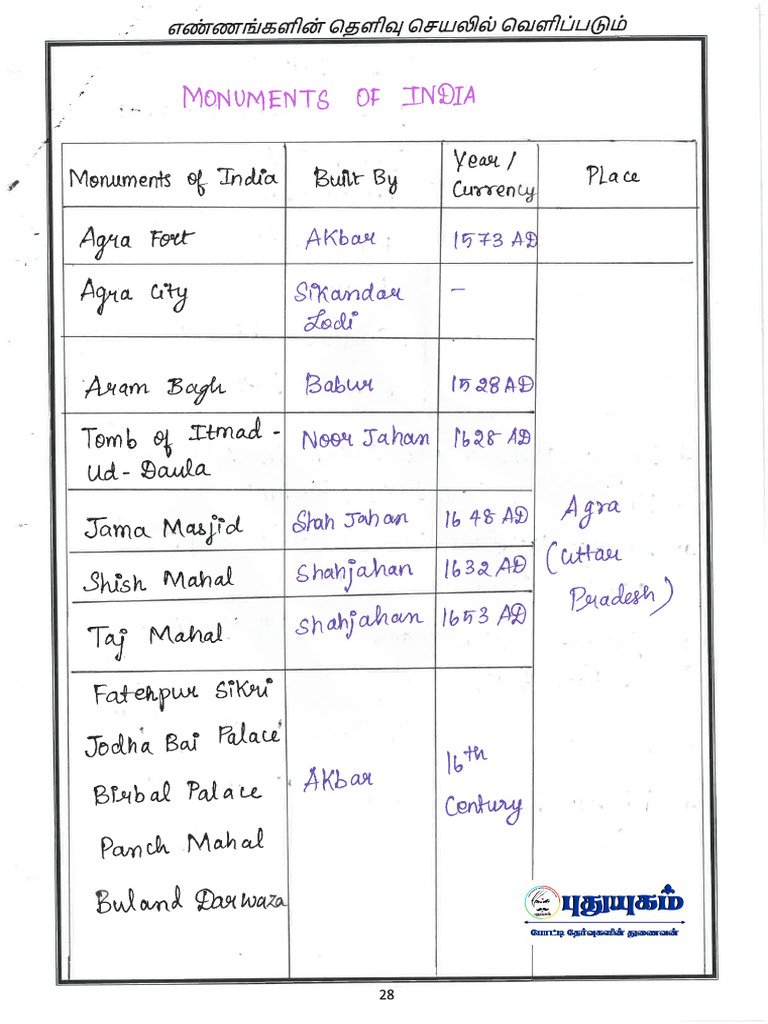 எண்ணங்களின் தெளிவு செயலில் வெளிப்படும்
MONUMENTS OF INDIA
Monuments of India Built By Year / Currency Place
Agra Fort Akbar 1573 AD
Agra City Sikandar Lodi –
Aram Bagh Babur 1528 AD
Tomb of Itmad - Ud - Daula Noor Jahan 1628 AD
Jama Masjid Shah Jahan 1648 AD
Shish Mahal Shahjahan 1632 AD
Taj Mahal Shahjahan 1653 AD
Agra (Uttar Pradesh)
Fatehpur Sikri
Jodha Bai Palace
Birbal Palace
Panch Mahal
Buland Darwaza
Akbar
16th Century
புதுயுகம்
போட்டி தேர்வுகளின் துணைவன்
28